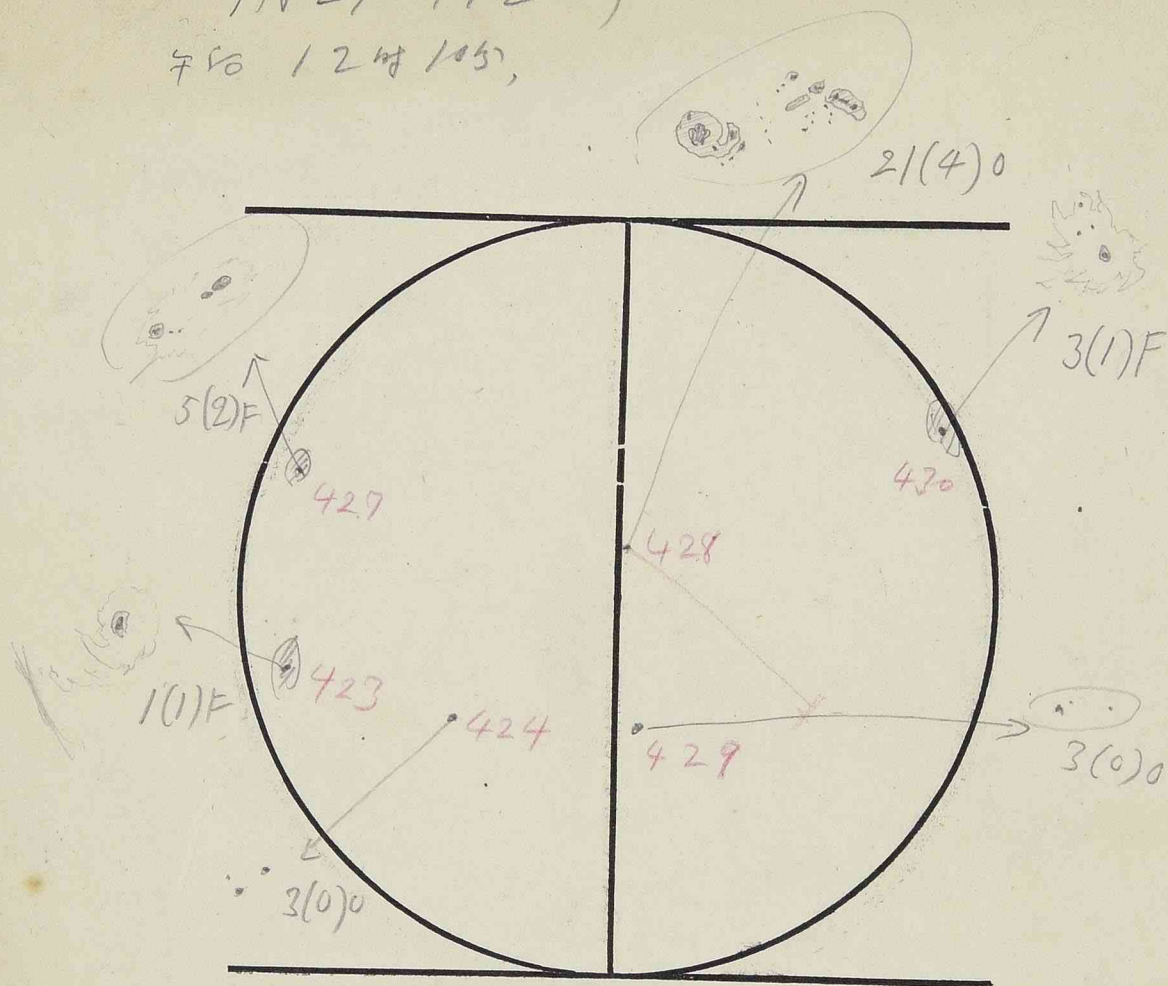 午后 12时10分,
21(4)0
3(1)F
5(2)F
427
430
428
1(1)F
423
424
429
3(0)0
3(0)0